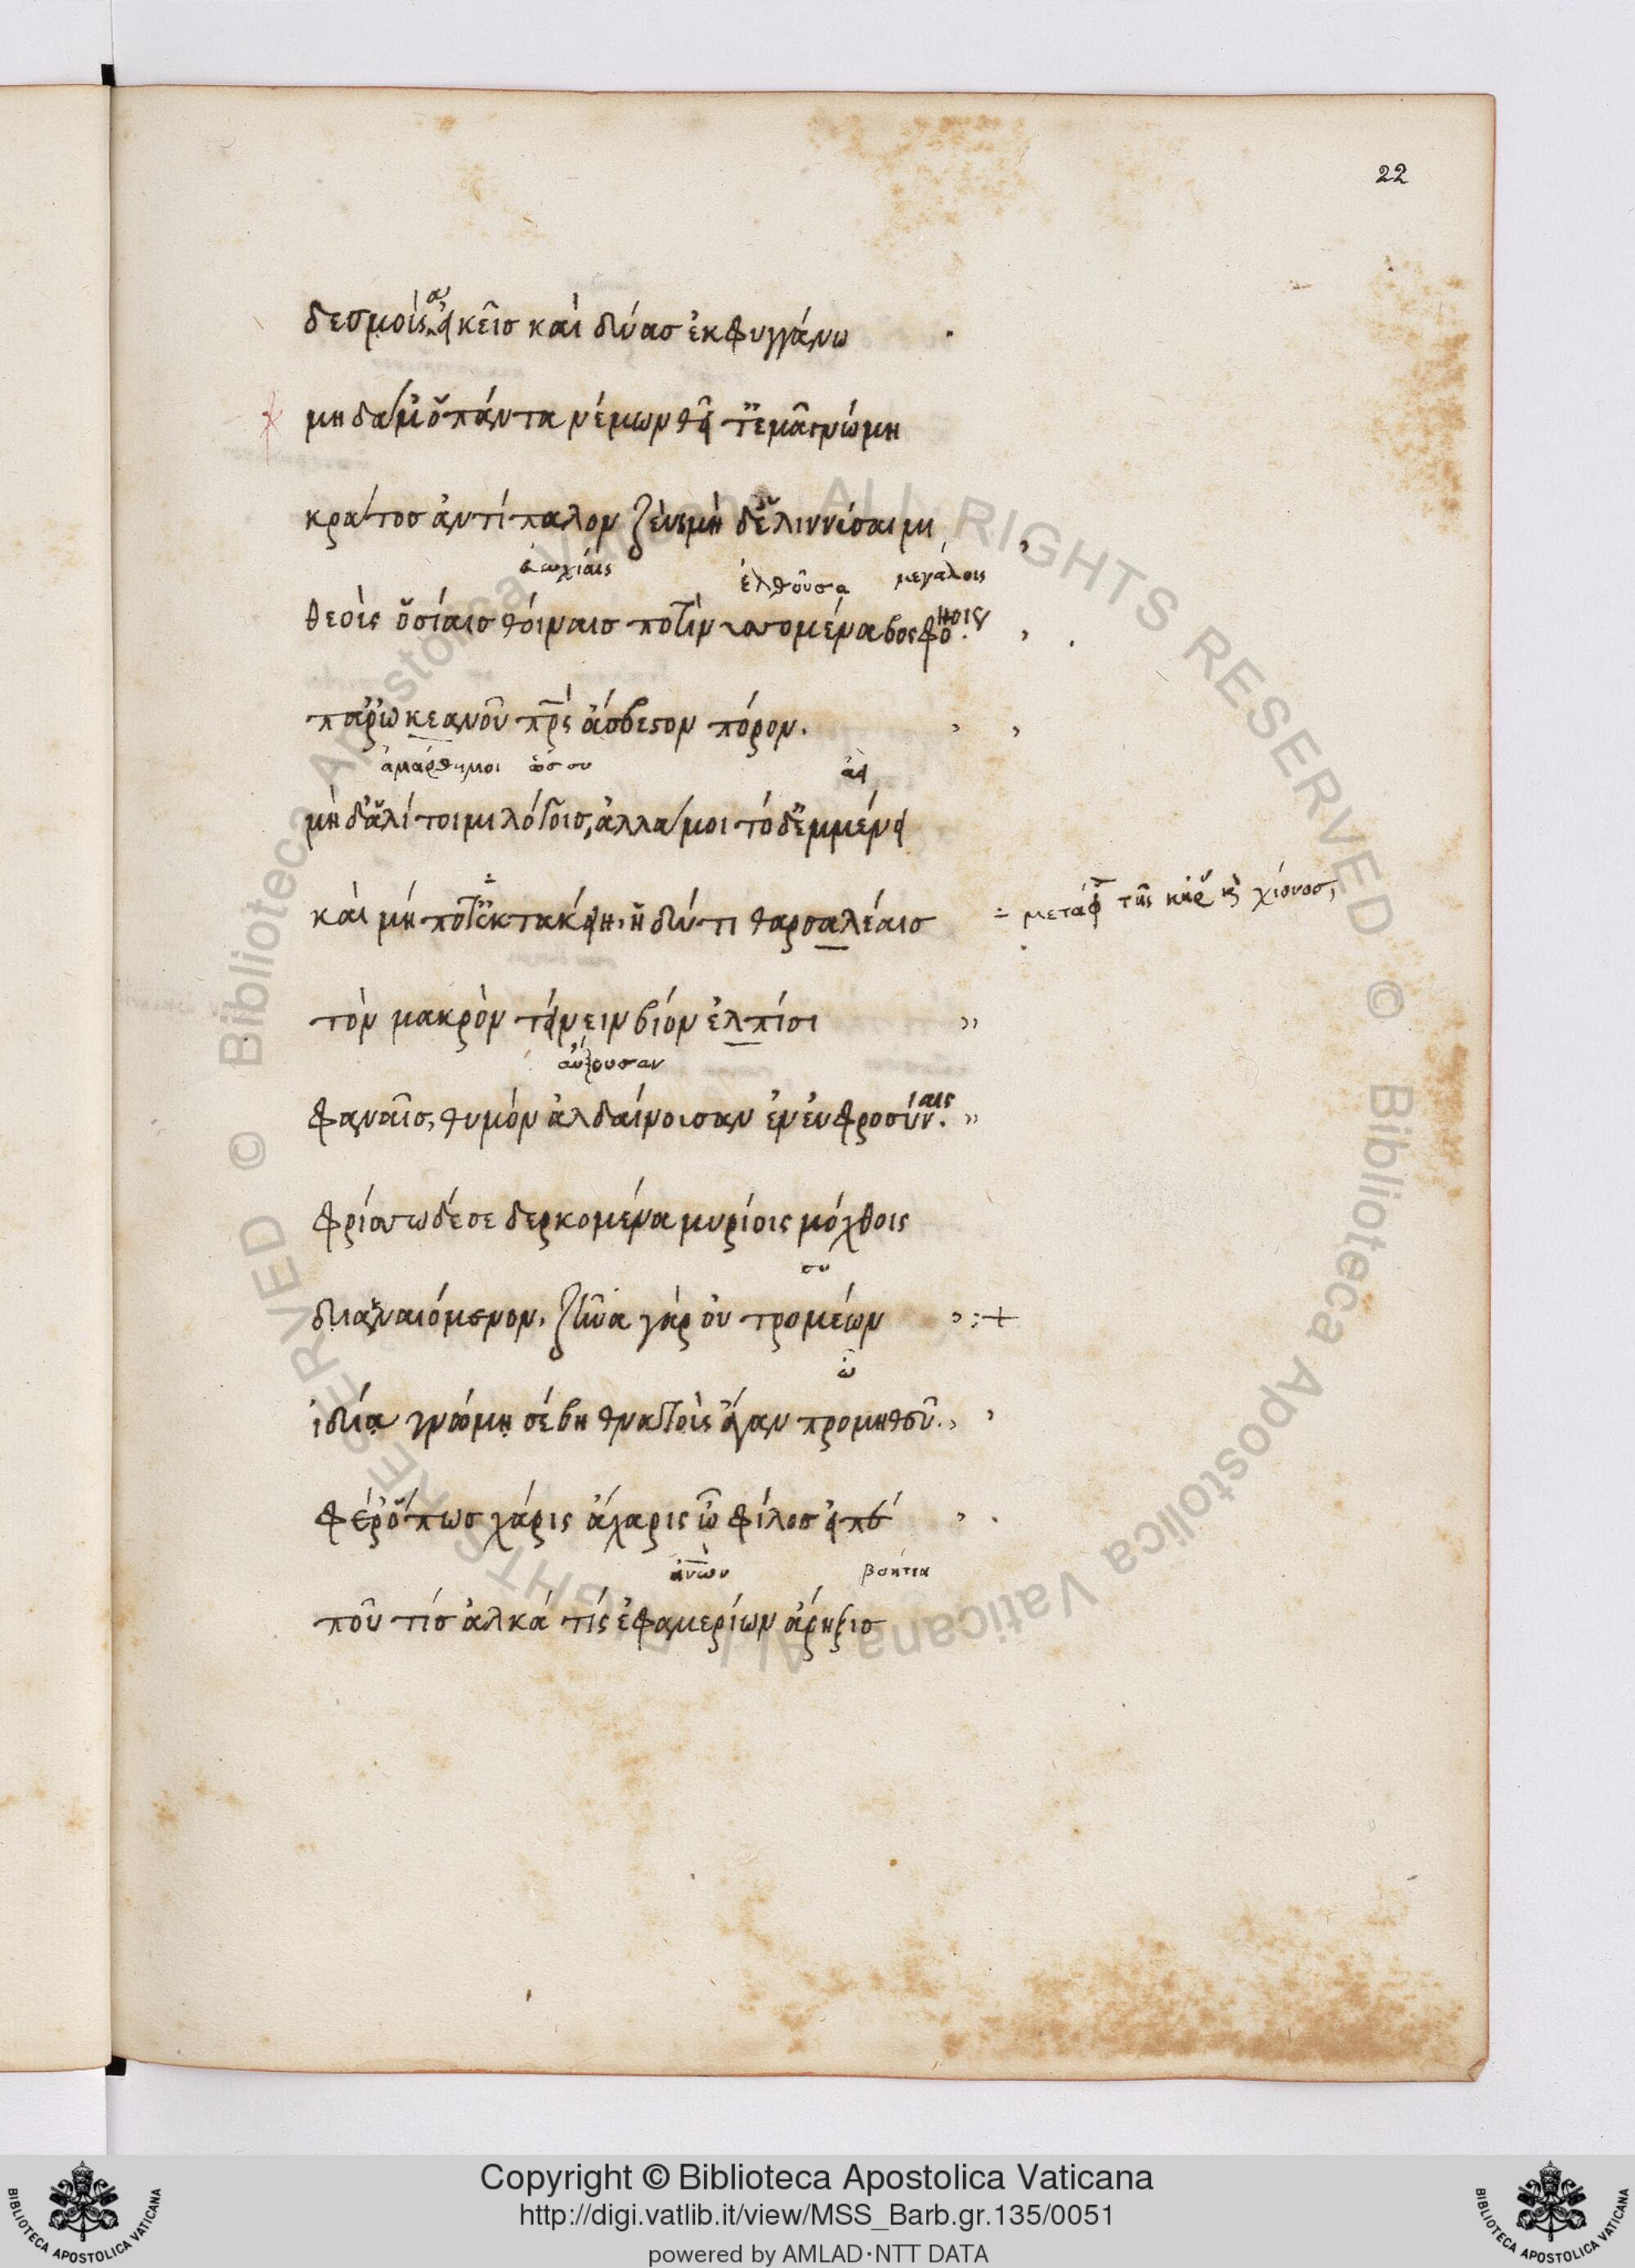 22
δεσμοὶς ἀεικεῖσ καὶ δύασ ἐκφυγγάνω
μηδαμ' ὁ πάντα νέμων θεῖτ' ἐμᾶ γνώμη
κράτοσ ἀντίπαλον ζεὺς μὴ δ' ἐλιννύσαιμι
ἐυωχίαις ἐλθοῦσα μεγάλοις
θεοὶς ὁσίαισ θοίναισ ποτινισσομένα βουφόνοις
παρ' ὠκεανοῦ πρὸς ἄσβεστον πόρον.
μὴδ' ἀλίτοιμι λόγοισ, ἀλλά μοι τό δ' ἐμμένει
καὶ μή ποτ' ἐκτακείη, ἡδύ τι θαρσαλέαισ
= μεταφ τῆς κηρ κ χιόνοσ,
τὸν μακρὸν τείνειν βίον ἐλπίσι
αὔξουσαν
φαναῖσ, θυμὸν ἀλδαίνουσαν ἐν ἐυφροσύναις
φρίσσω δέ σε δερκομένα μυρίοις μόχθοις
συ
διακναιόμενον, ζῆνα γὰρ ὀυ τρομέων
ὦ
ἰδία γνώμη σέβη θνατοὶς ἄγαν προμηθεῦ.
φέρ' ὅπως χάρις ἄχαρις ὦ φίλοσ εἰπέ
ἀνων βοήθεια
ποῦ τίσ ἀλκά τίς ἐφαμερίων ἄρηξισ
© Biblioteca Apostolica Vaticana ALL RIGHTS RESERVED © Biblioteca Apostolica Vaticana ALL RIGHTS RESERVED
Copyright © Biblioteca Apostolica Vaticana
http://digi.vatlib.it/view/MSS_Barb.gr.135/0051
powered by AMLAD·NTT DATA
BIBLIOTECA APOSTOLICA VATICANA
BIBLIOTECA APOSTOLICA VATICANA